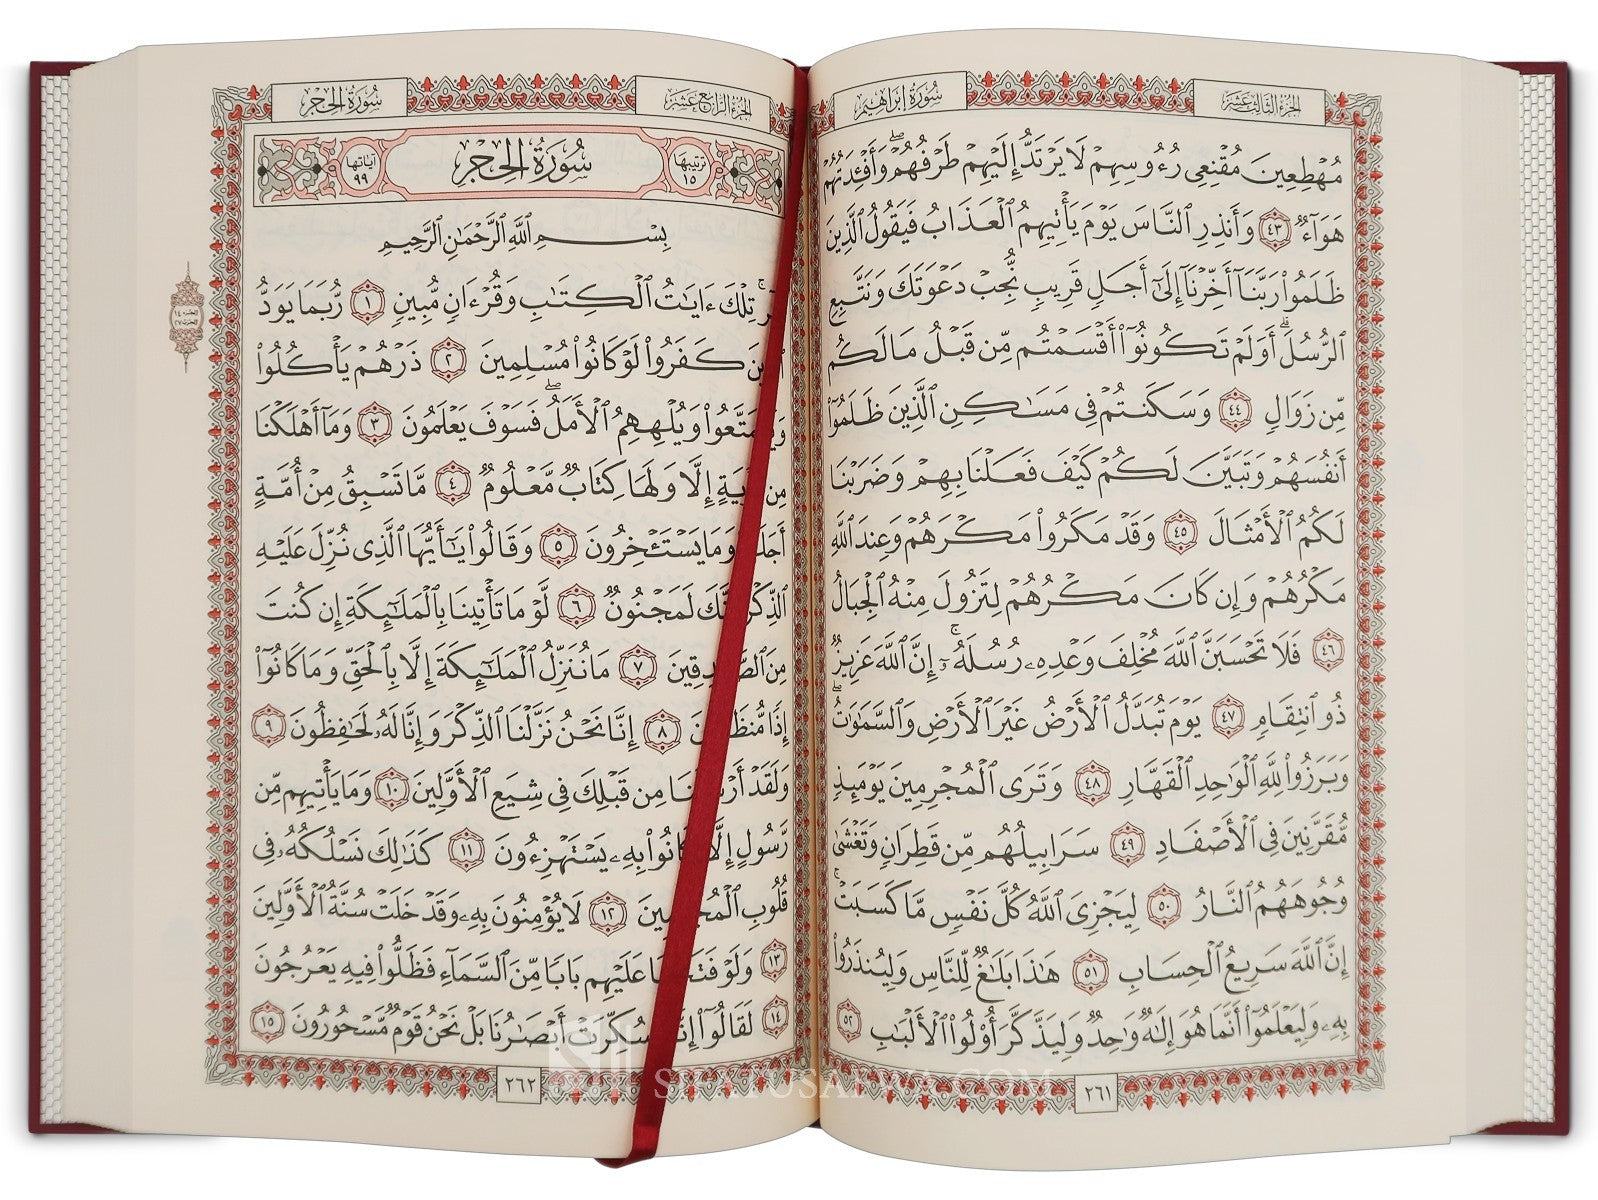 سُورَةُ إبْرَاهِيم
الجُزْءُ الثَّالِثَ عَشَرَ
مُهْطِعِينَ مُقْنِعِى رُءُوسِهِمْ لَا يَرْتَدُّ إِلَيْهِمْ طَرْفُهُمْ ۖ وَأَفْـِٔدَتُهُمْ
هَوَآءٌ ٤٣ وَأَنذِرِ ٱلنَّاسَ يَوْمَ يَأْتِيهِمُ ٱلْعَذَابُ فَيَقُولُ ٱلَّذِينَ
ظَلَمُوا۟ رَبَّنَآ أَخِّرْنَآ إِلَىٰٓ أَجَلٍ قَرِيبٍ نُّجِبْ دَعْوَتَكَ وَنَتَّبِعِ
ٱلرُّسُلَ ۗ أَوَلَمْ تَكُونُوٓا۟ أَقْسَمْتُم مِّن قَبْلُ مَا لَكُم
مِّن زَوَالٍ ٤٤ وَسَكَنتُمْ فِى مَسَـٰكِنِ ٱلَّذِينَ ظَلَمُوٓا۟
أَنفُسَهُمْ وَتَبَيَّنَ لَكُمْ كَيْفَ فَعَلْنَا بِهِمْ وَضَرَبْنَا
لَكُمُ ٱلْأَمْثَالَ ٤٥ وَقَدْ مَكَرُوا۟ مَكْرَهُمْ وَعِندَ ٱللَّهِ
مَكْرُهُمْ وَإِن كَانَ مَكْرُهُمْ لِتَزُولَ مِنْهُ ٱلْجِبَالُ
٤٦ فَلَا تَحْسَبَنَّ ٱللَّهَ مُخْلِفَ وَعْدِهِۦ رُسُلَهُۥٓ ۚ إِنَّ ٱللَّهَ عَزِيزٌ
ذُو ٱنتِقَامٍ ٤٧ يَوْمَ تُبَدَّلُ ٱلْأَرْضُ غَيْرَ ٱلْأَرْضِ وَٱلسَّمَـٰوَٰتُ ۖ
وَبَرَزُوا۟ لِلَّهِ ٱلْوَٰحِدِ ٱلْقَهَّارِ ٤٨ وَتَرَى ٱلْمُجْرِمِينَ يَوْمَئِذٍ
مُّقَرَّنِينَ فِى ٱلْأَصْفَادِ ٤٩ سَرَابِيلُهُم مِّن قَطِرَانٍ وَتَغْشَىٰ
وُجُوهَهُمُ ٱلنَّارُ ٥٠ لِيَجْزِىَ ٱللَّهُ كُلَّ نَفْسٍ مَّا كَسَبَتْ ۚ
إِنَّ ٱللَّهَ سَرِيعُ ٱلْحِسَابِ ٥١ هَـٰذَا بَلَـٰغٌ لِّلنَّاسِ وَلِيُنذَرُوا۟
بِهِۦ وَلِيَعْلَمُوٓا۟ أَنَّمَا هُوَ إِلَـٰهٌ وَٰحِدٌ وَلِيَذَّكَّرَ أُو۟لُوا۟ ٱلْأَلْبَـٰبِ ٥٢
٢٦١
الجُزْءُ الرَّابِعَ عَشَرَ
سُورَةُ الحِجْر
ترتيبها ١٥
سُورَةُ الحِجْر
آياتها ٩٩
بِسْمِ ٱللَّهِ ٱلرَّحْمَـٰنِ ٱلرَّحِيمِ
تِلْكَ ءَايَـٰتُ ٱلْكِتَـٰبِ وَقُرْءَانٍ مُّبِينٍ ١ رُّبَمَا يَوَدُّ
كَفَرُوا۟ لَوْ كَانُوا۟ مُسْلِمِينَ ٢ ذَرْهُمْ يَأْكُلُوا۟
وَيُلْهِهِمُ ٱلْأَمَلُ ۖ فَسَوْفَ يَعْلَمُونَ ٣ وَمَآ أَهْلَكْنَا
مِن إِلَّا وَلَهَا كِتَابٌ مَّعْلُومٌ ٤ مَّا تَسْبِقُ مِنْ أُمَّةٍ
وَمَا يَسْتَـْٔخِرُونَ ٥ وَقَالُوا۟ يَـٰٓأَيُّهَا ٱلَّذِى نُزِّلَ عَلَيْهِ
لَمَجْنُونٌ ٦ لَّوْ مَا تَأْتِينَا بِٱلْمَلَـٰٓئِكَةِ إِن كُنتَ
مِنَ ٧ مَا نُنَزِّلُ ٱلْمَلَـٰٓئِكَةَ إِلَّا بِٱلْحَقِّ وَمَا كَانُوٓا۟
إِذًا ٨ إِنَّا نَحْنُ نَزَّلْنَا ٱلذِّكْرَ وَإِنَّا لَهُۥ لَحَـٰفِظُونَ ٩
وَلَقَدْ مِن قَبْلِكَ فِى شِيَعِ ٱلْأَوَّلِينَ ١٠ وَمَا يَأْتِيهِم مِّن
رَّسُولٍ إِلَّا بِهِۦ يَسْتَهْزِءُونَ ١١ كَذَٰلِكَ نَسْلُكُهُۥ فِى
قُلُوبِ ١٢ لَا يُؤْمِنُونَ بِهِۦ وَقَدْ خَلَتْ سُنَّةُ ٱلْأَوَّلِينَ
١٣ وَلَوْ عَلَيْهِم بَابًا مِّنَ ٱلسَّمَآءِ فَظَلُّوا۟ فِيهِ يَعْرُجُونَ
١٤ لَقَالُوٓا۟ سُكِّرَتْ أَبْصَـٰرُنَا بَلْ نَحْنُ قَوْمٌ مَّسْحُورُونَ ١٥
٢٦٢